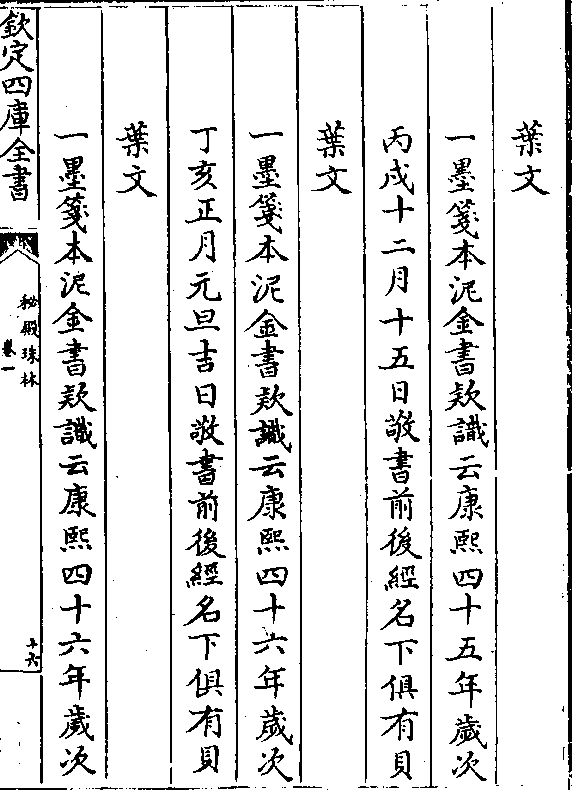 葉文
一墨箋本泥金書欵識云康熙四十五年歲次
丙戌十二月十五日敬書前後經名下俱有貝
葉文
一墨箋本泥金書欵識云康熙四十六年歲次
丁亥正月元旦吉日敬書前後經名下俱有貝
葉文
一墨箋本泥金書欵識云康熙四十六年歲次
欽定四庫全書
秘殿珠林
卷一
十六